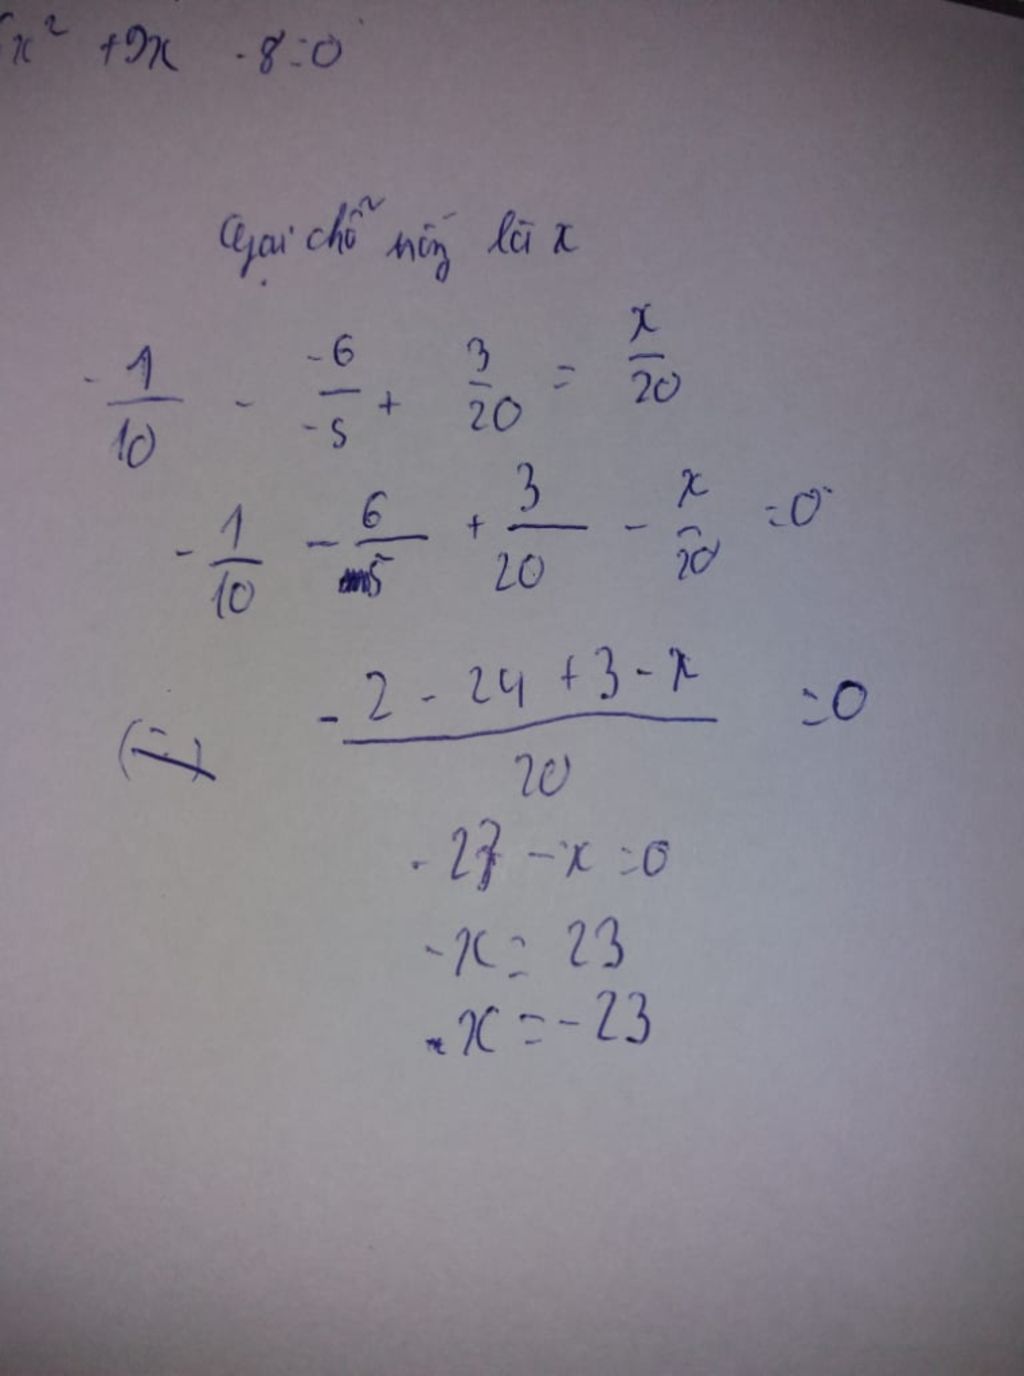 x² + 9x - 8 = 0
Gọi chỗ là x
- 1/10 - -6/-5 + 3/20 = x/20
- 1/10 - 6/5 + 3/20 - x/20 = 0
- 2 - 24 + 3 - x / 20 = 0
- 27 - x = 0
- x = 23
x = - 23